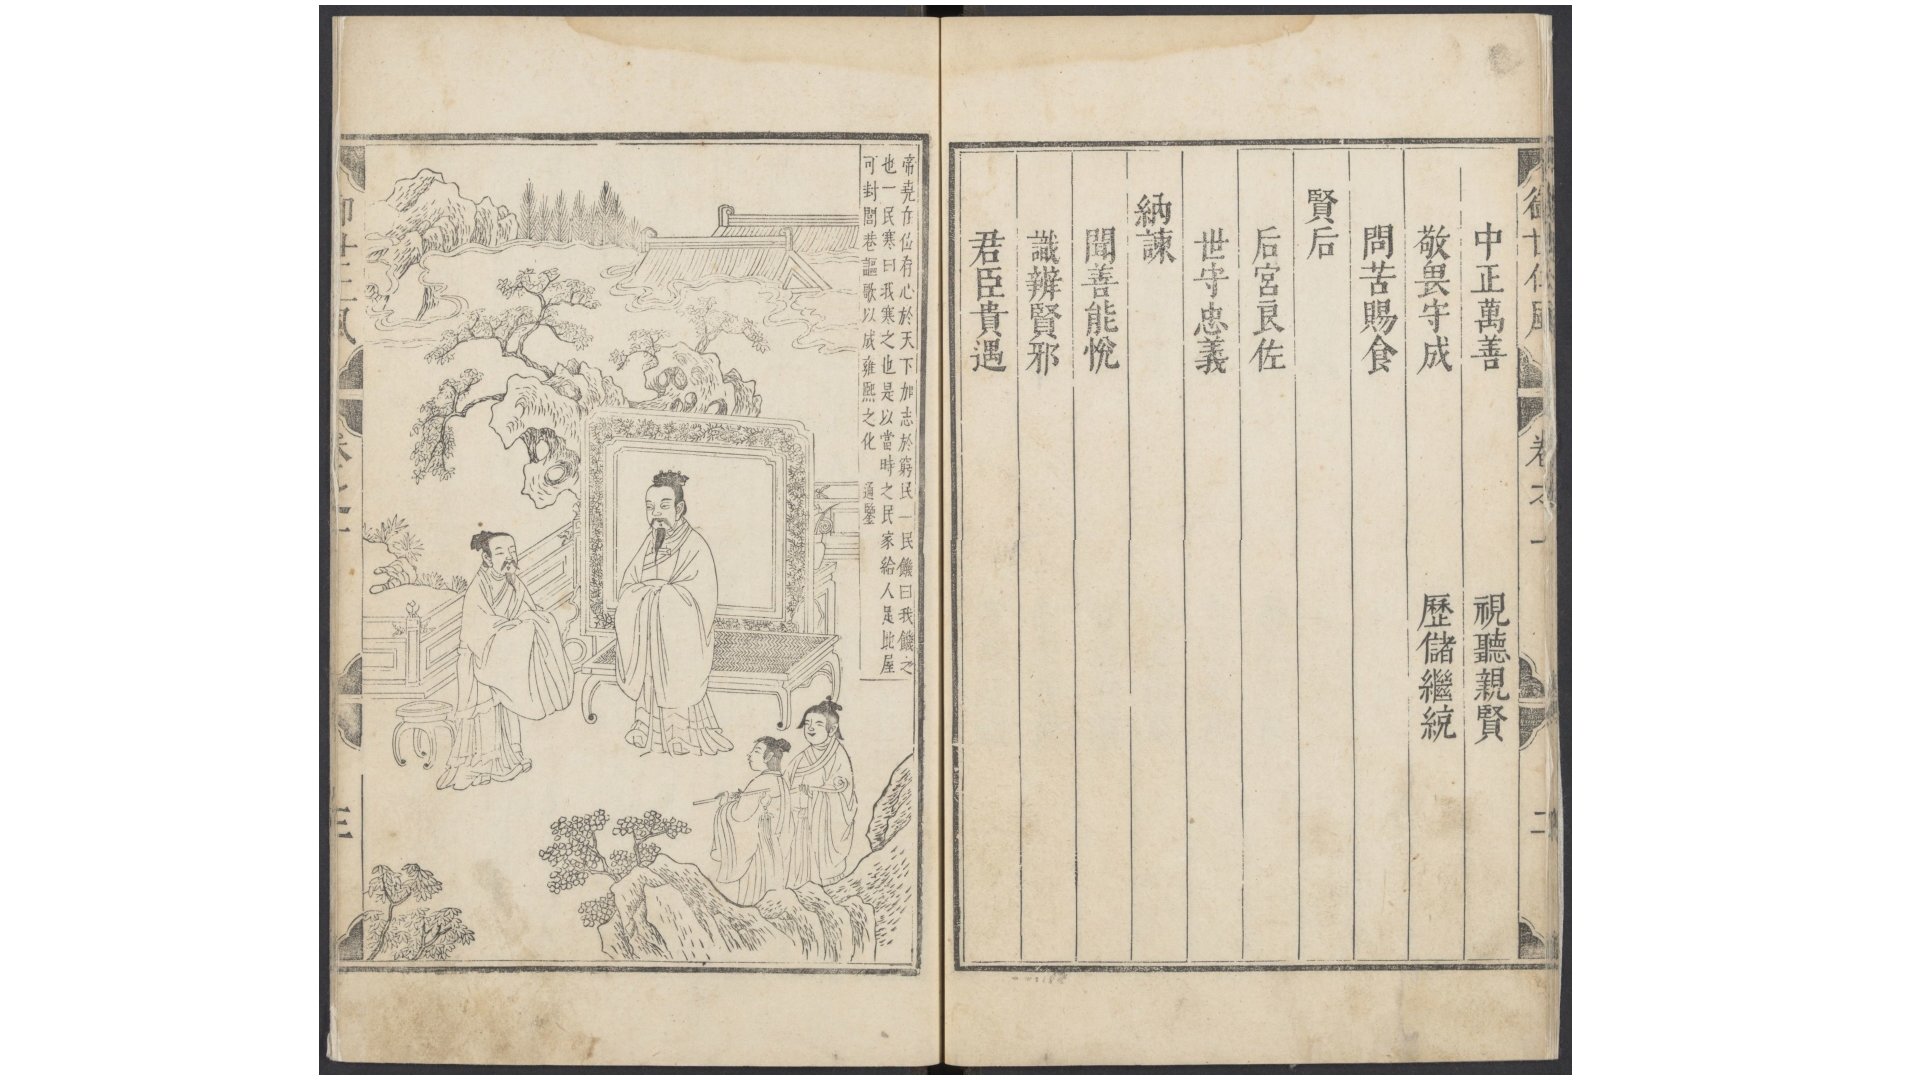 中正萬善　視聽親賢
敬畏守成　歷儲繼統
問苦賜食
賢后
后宮良佐
世守忠義
納諫
聞善能悅
識辨賢邪
君臣貴遇
卷之一
二
帝堯在位存心於天下加志於窮民一民饑曰我饑之
也一民寒曰我寒之也是以當時之民家給人足比屋
可封閭巷謳歌以成雍熙之化　通鑒